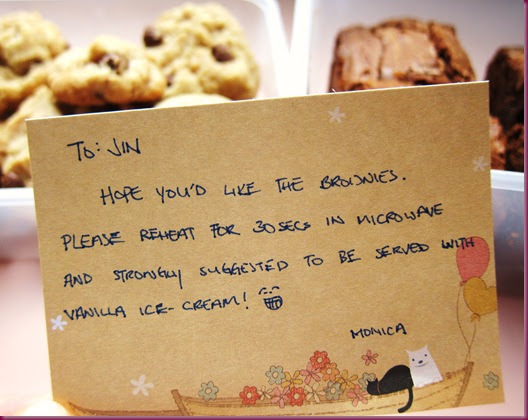 TO: JIN
HOPE YOU'D LIKE THE BROWNIES.
PLEASE REHEAT FOR 30SECS IN MICROWAVE
AND STRONGLY SUGGESTED TO BE SERVED WITH
VANILLA ICE-CREAM!
MONICA